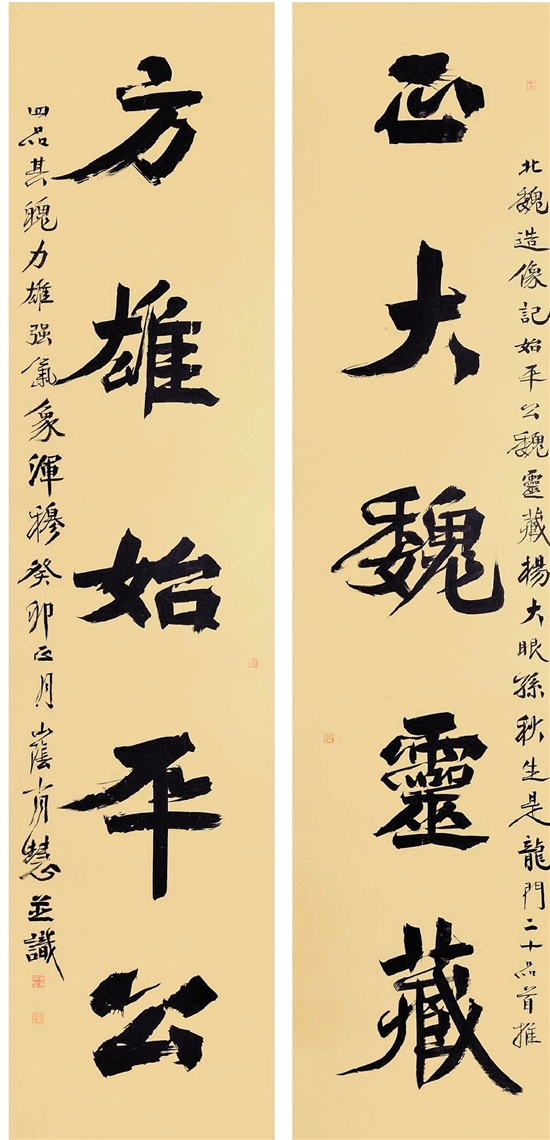 北魏造像記始平公魏靈藏楊大眼孫秋生是龍門二十品首推
正大魏靈藏
方雄始平公
四品其魄力雄强氣象渾穆癸卯正月山蔭慧並識